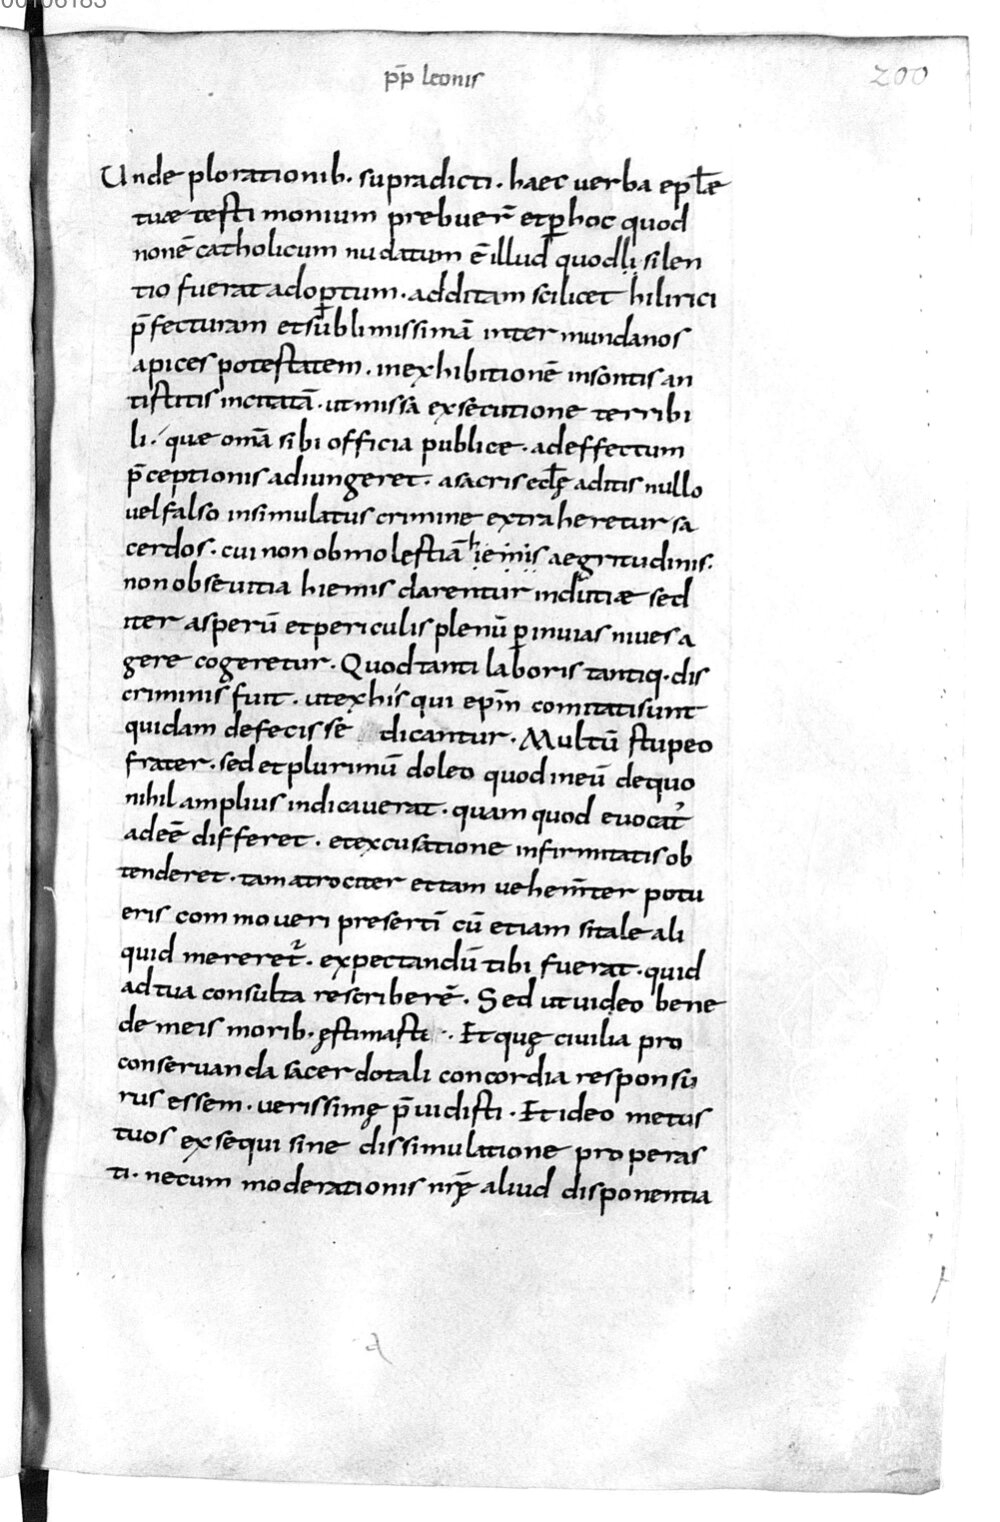 00106183
pp̄ leonis
200
Unde plorationib· supradicti· haec uerba epłe
tuae testimonium prebuer̄ et ꝑ hoc quod
non ē catholicum nudatum ē illud quod li silen
tio fuerat adoptum· additam scilicet hilirici
p̄fecturam et sublimissimā inter mundanos
apices potestatem· in exhibitionē insontis an
tistitis incitatā· ut missa exsecutione terribi
li· que omā sibi officia publice· ad effectum
p̄ceptionis adiungeret· a sacris ecłę aditis nullo
uel falso insimulatus crimine extraheretur sa
cerdos· cui non ob molestiā hiemis aegritudinis·
non ob seuitia hiemis darentur indutiae sed
iter asperū et periculis plenū ꝑ inuias niues a
gere cogeretur· Quod tanti laboris tantiq· dis
criminis fuit· ut ex his qui ep̄m comitati sunt
quidam defecisse dicantur· Multū stupeo
frater· sed et plurimū doleo quod in eū de quo
nihil amplius indicauerat· quam quod euocat᷑
adeē differet· et excusatione infirmitatis ob
tenderet· tam atrociter et tam uehem̄ter potu
eris commoueri presertī cū etiam si tale ali
quid mereret᷑· expectandū tibi fuerat· quid
ad tua consulta rescriberē· Sed ut uideo bene
de meis morib· ęstimasti· Et quę ciuilia pro
conseruanda sacerdotali concordia responsu
rus essem· uerissimę p̄uidisti· Et ideo metus
tuos exsequi sine dissimulatione properas
ti· ne cum moderationis nr̄ę aliud disponentia